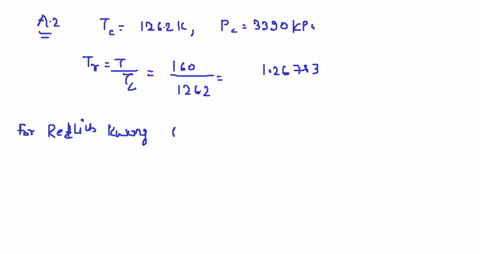 A.2 Tc = 126.2 K, Pc = 3390 KPa
Tr = T / Tc = 160 / 126.2 = 1.26783
For Redlich Kwong (